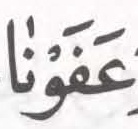 عَفَوْنَا